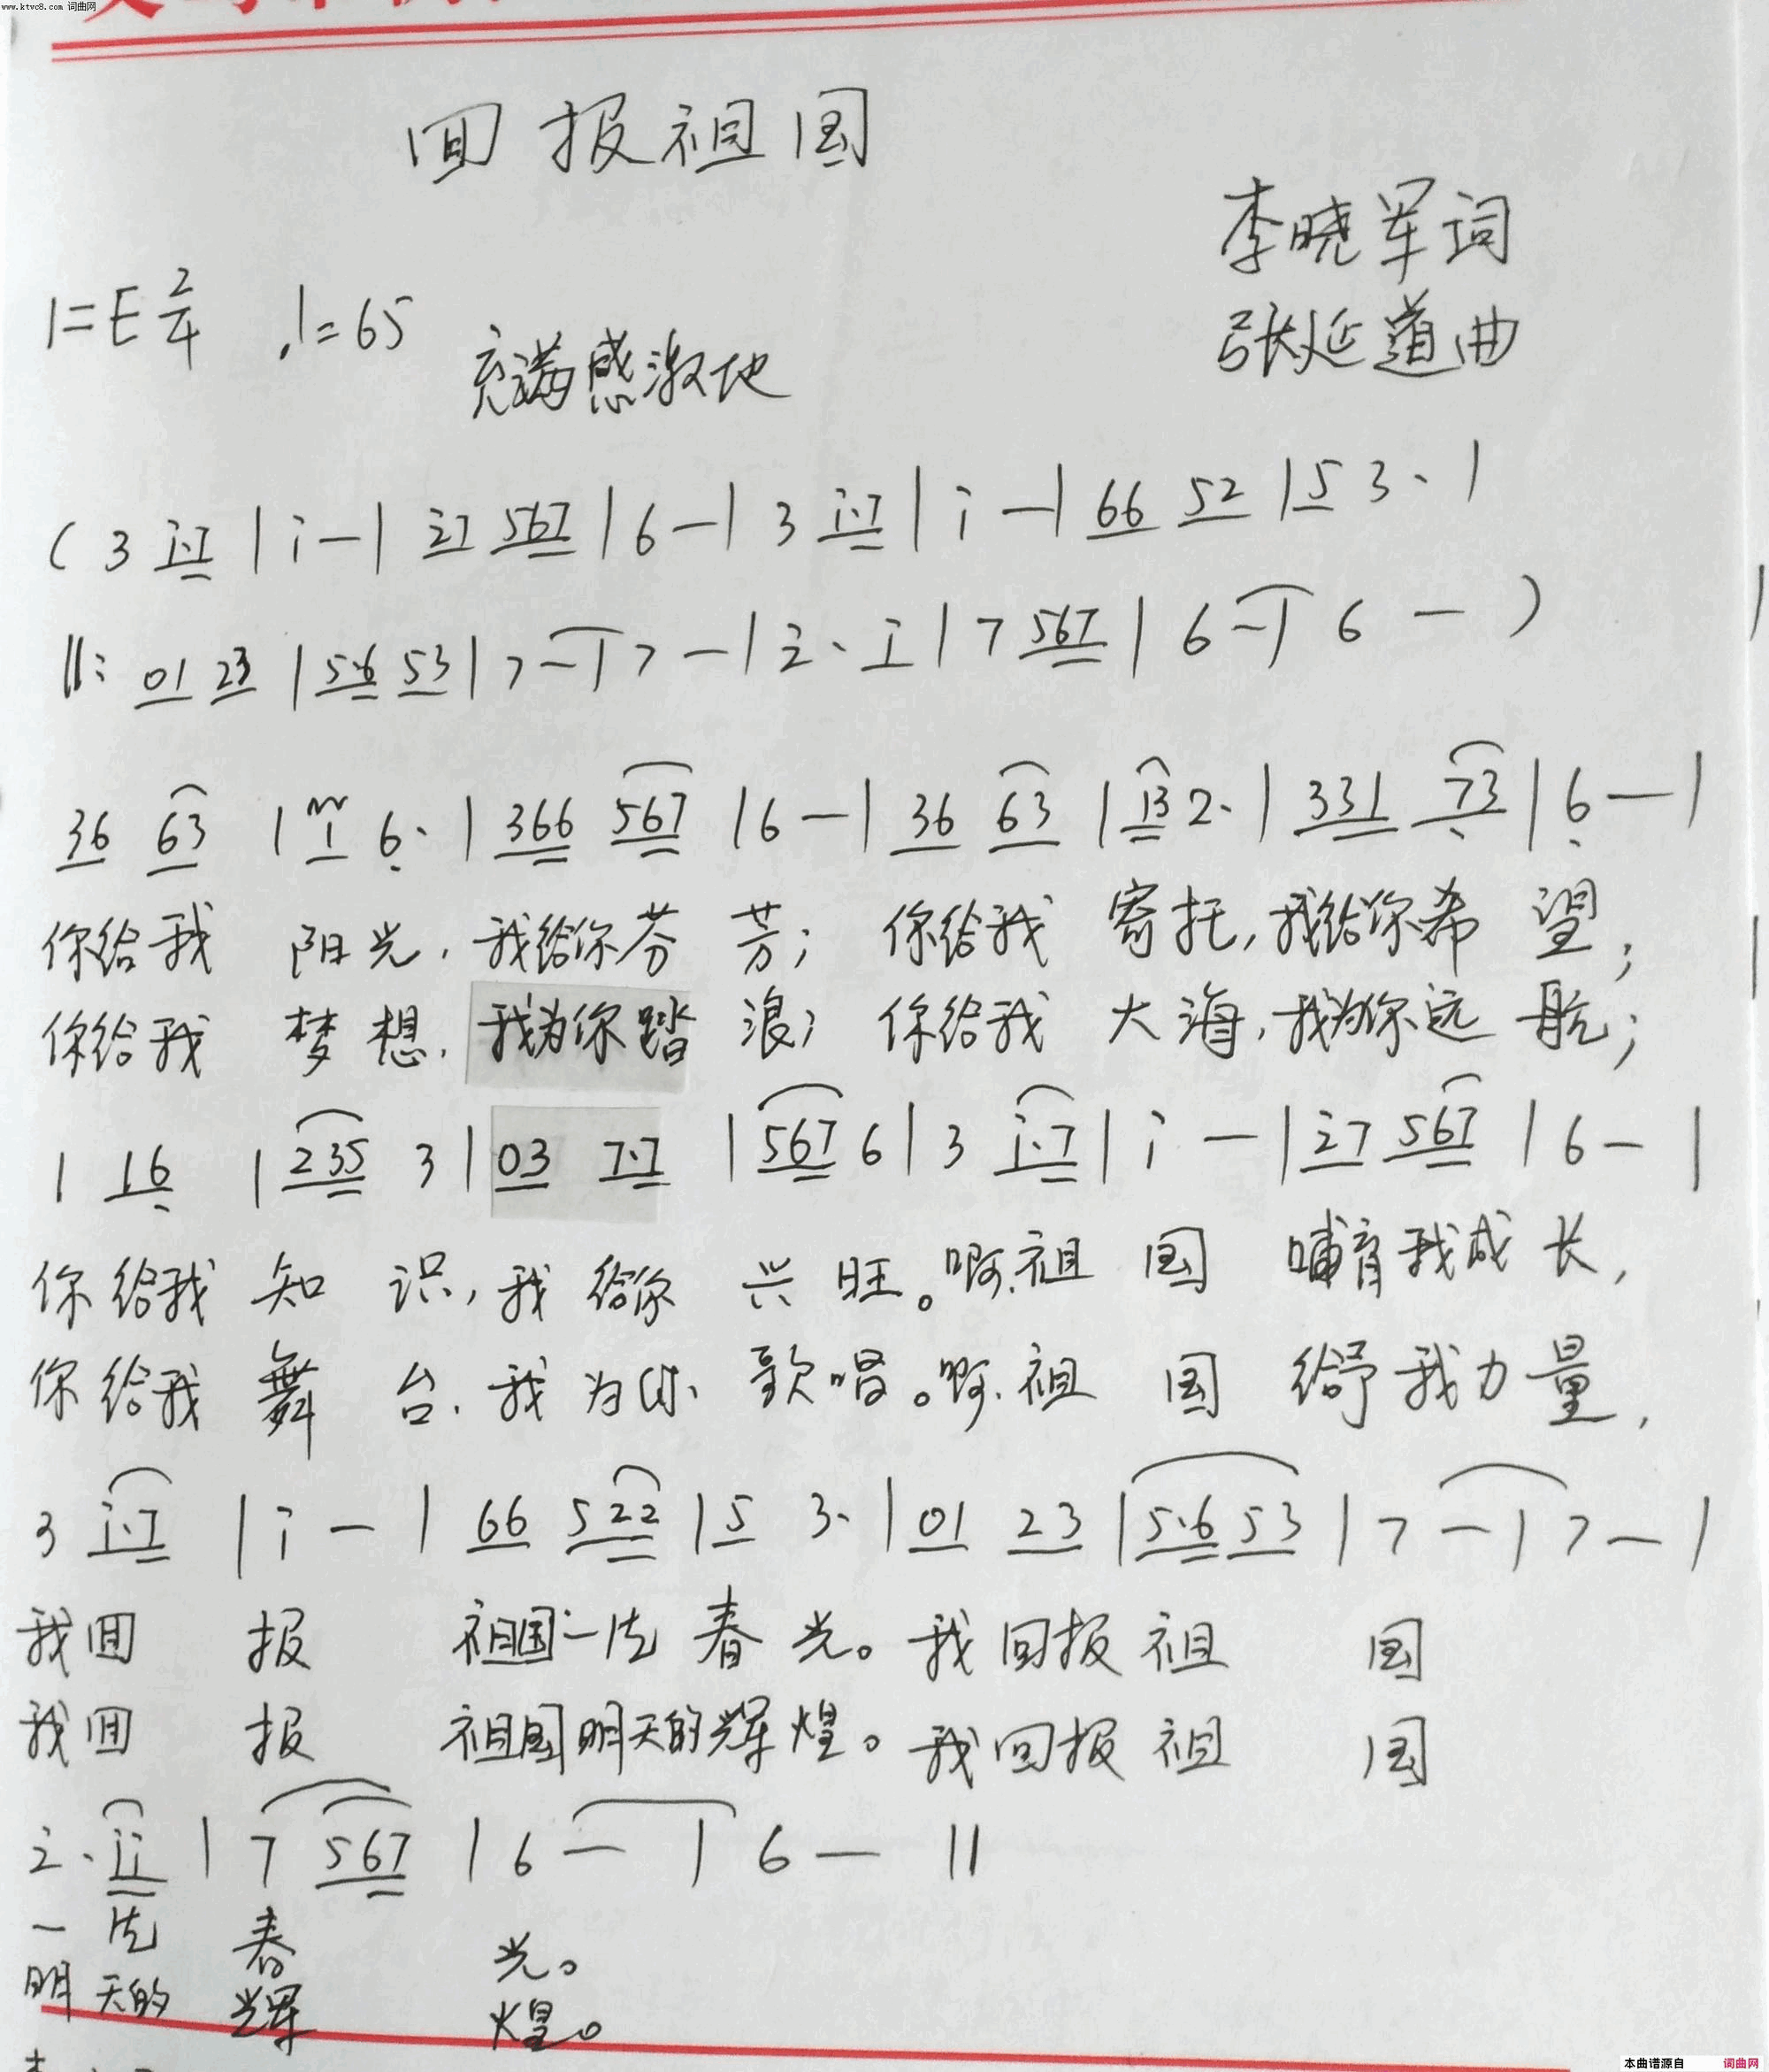 www.ktvc8.com 词曲网
回报祖国
李晓军词
1=E 2/4 ♩=65
张延道曲
充满感激地
( 3 i·7 | i - | 2̇7 567 | 6 - | 3 i·7 | i - | 66 52 | 5 3· |
‖: 01 23 | 5·6 53 | 7 - | 7 - | 2̇· i | 7 567 | 6 - | 6 - )
36 63 | 1 6̣· | 366 567 | 6 - | 36 63 | 13 2· | 331 7̣3 | 6̣ - |
你给我 阳光,我给你芬 芳; 你给我 寄托,我给你希 望;
你给我 梦想,我为你踏 浪; 你给我 大海,我为你远 航;
1 16̣ | 235 3 | 03 7·7 | 567 6 | 3 i·7 | i - | 2̇7 567 | 6 - |
你给我 知 识,我 给你 兴 旺。啊,祖 国 哺育我成 长,
你给我 舞 台,我 为你 歌唱。啊,祖 国 给予我力量,
3 i·7 | i - | 66 522 | 5 3· | 01 23 | 5·6 53 | 7 - | 7 - |
我回 报 祖国一片 春 光。我回报 祖 国
我回 报 祖国明天的辉煌。我回报 祖 国
2̇· ii | 7 567 | 6 - | 6 - ‖
一 片 春 光。
明 天的 辉 煌。
本曲谱源自 词曲网